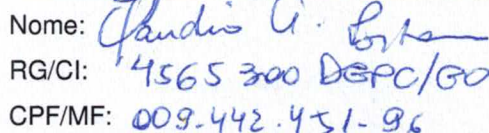 Nome: Claudio A.
RG/CI: 4565300 DGPC/GO
CPF/MF: 009.442.451-96